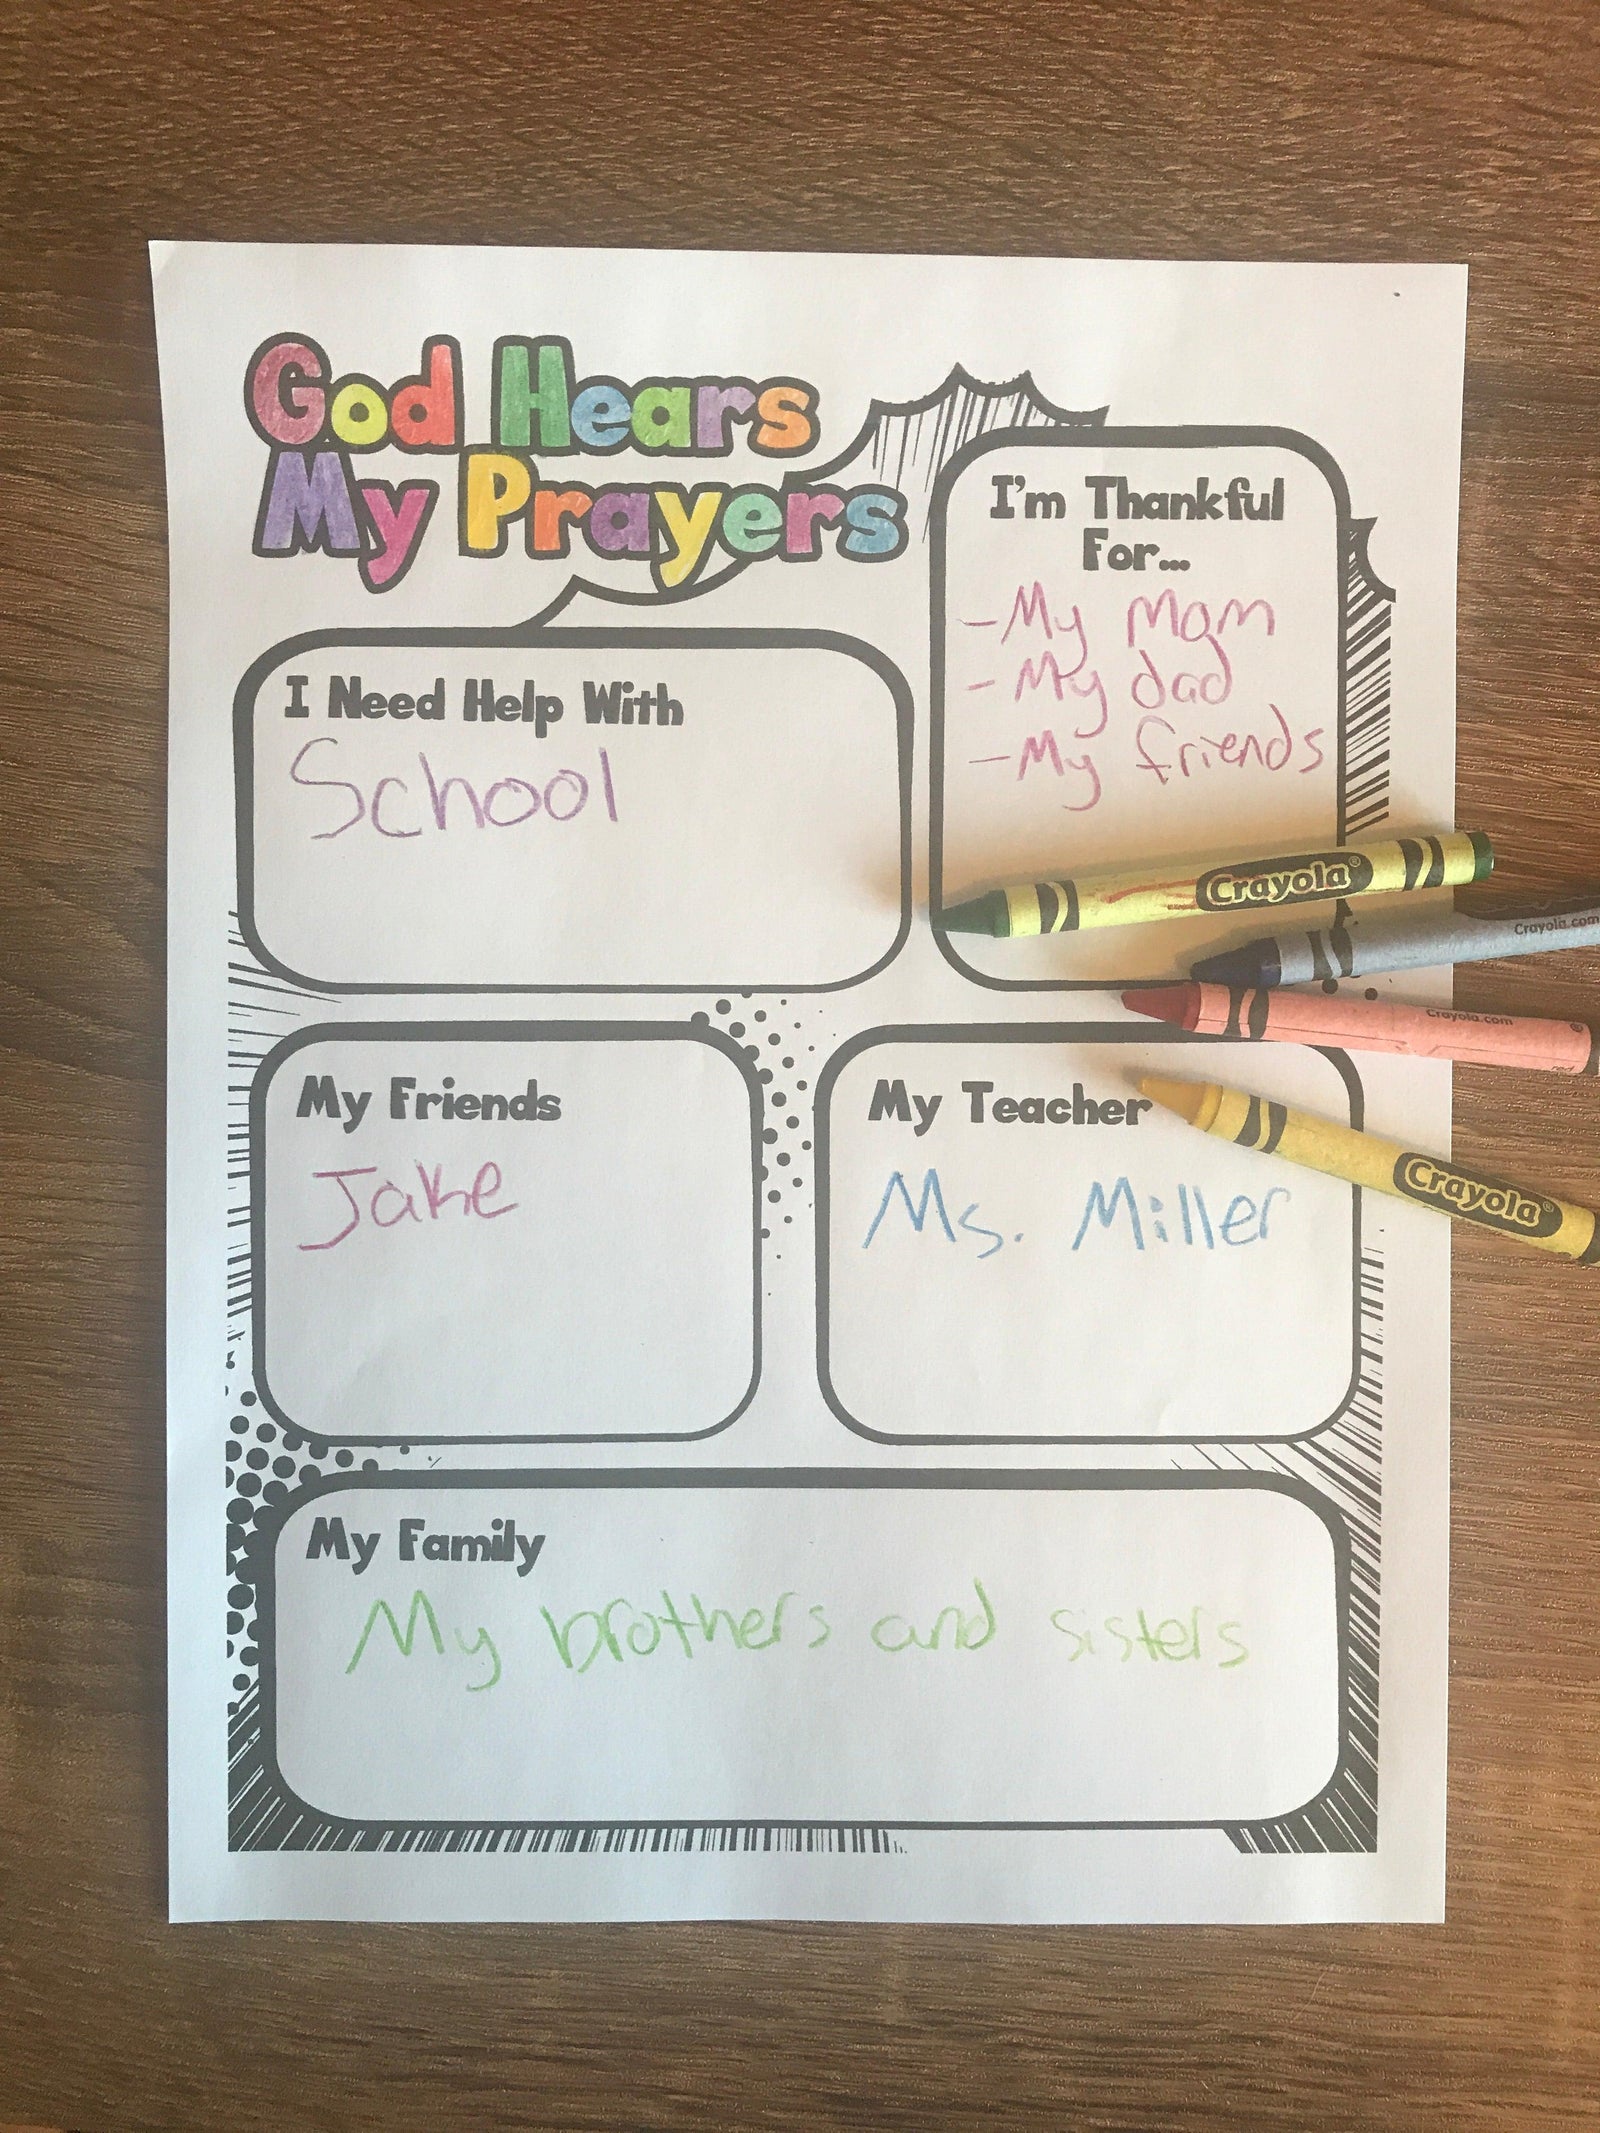 God Hears
My Prayers
I'm Thankful
For...
-My Mom
-My dad
-My friends
I Need Help With
School
Crayola®
Crayola.com
Crayola.com
Crayola®
My Friends
Jake
My Teacher
Ms. Miller
My Family
My brothers and sisters